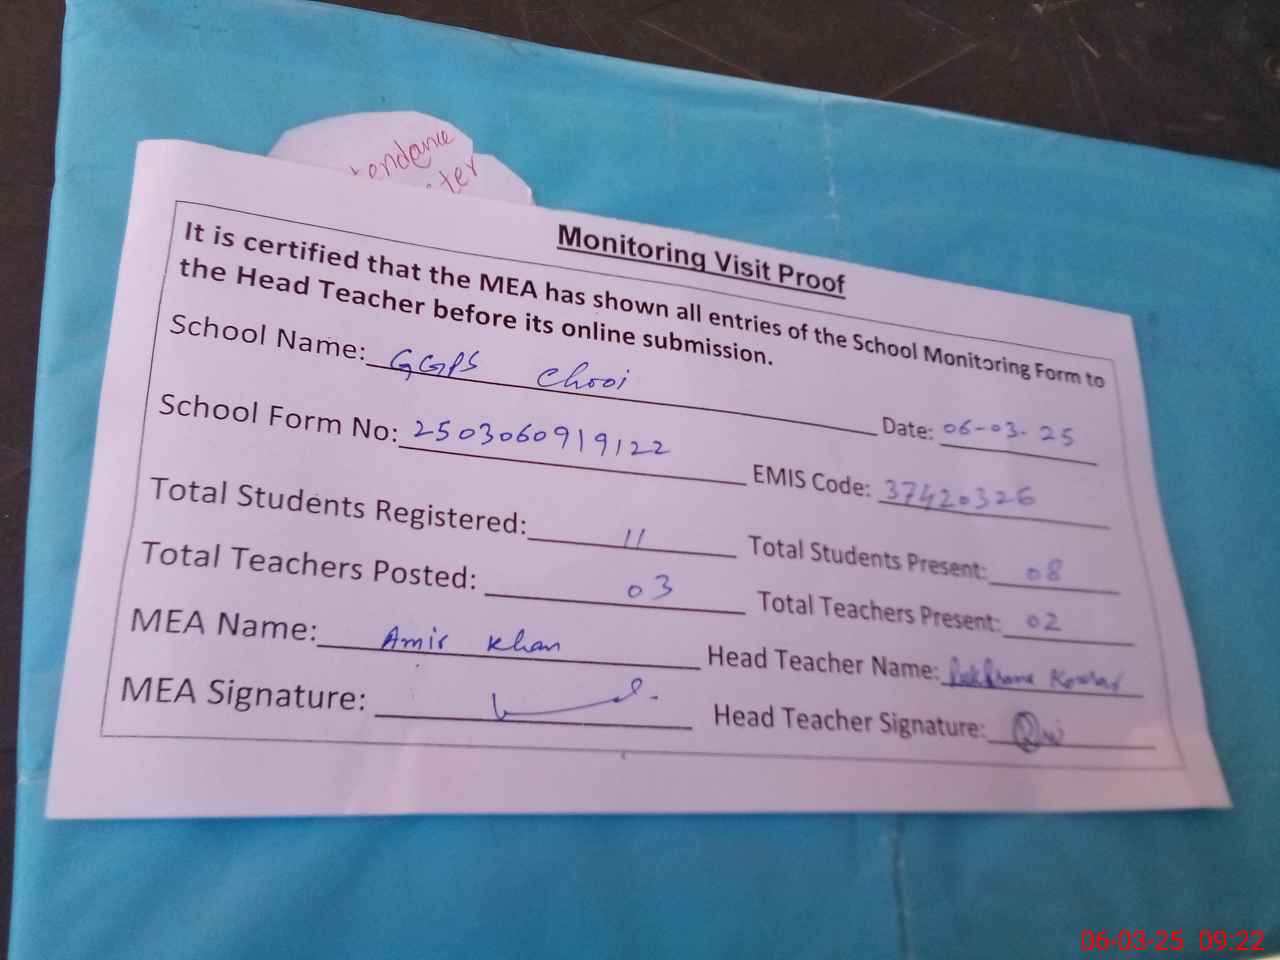 endance
ter
Monitoring Visit Proof
It is certified that the MEA has shown all entries of the School Monitoring Form to
the Head Teacher before its online submission.
School Name: GGPS Chooi
Date: 06-03-25
School Form No: 2503060919122
EMIS Code: 37420326
Total Students Registered: 11
Total Students Present: 08
Total Teachers Posted: 03
Total Teachers Present: 02
MEA Name: Amir Khan
Head Teacher Name:
MEA Signature:
Head Teacher Signature:
06-03-25 09:22